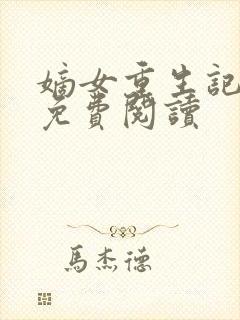 嫡女重生記
免費閱讀
馬杰德